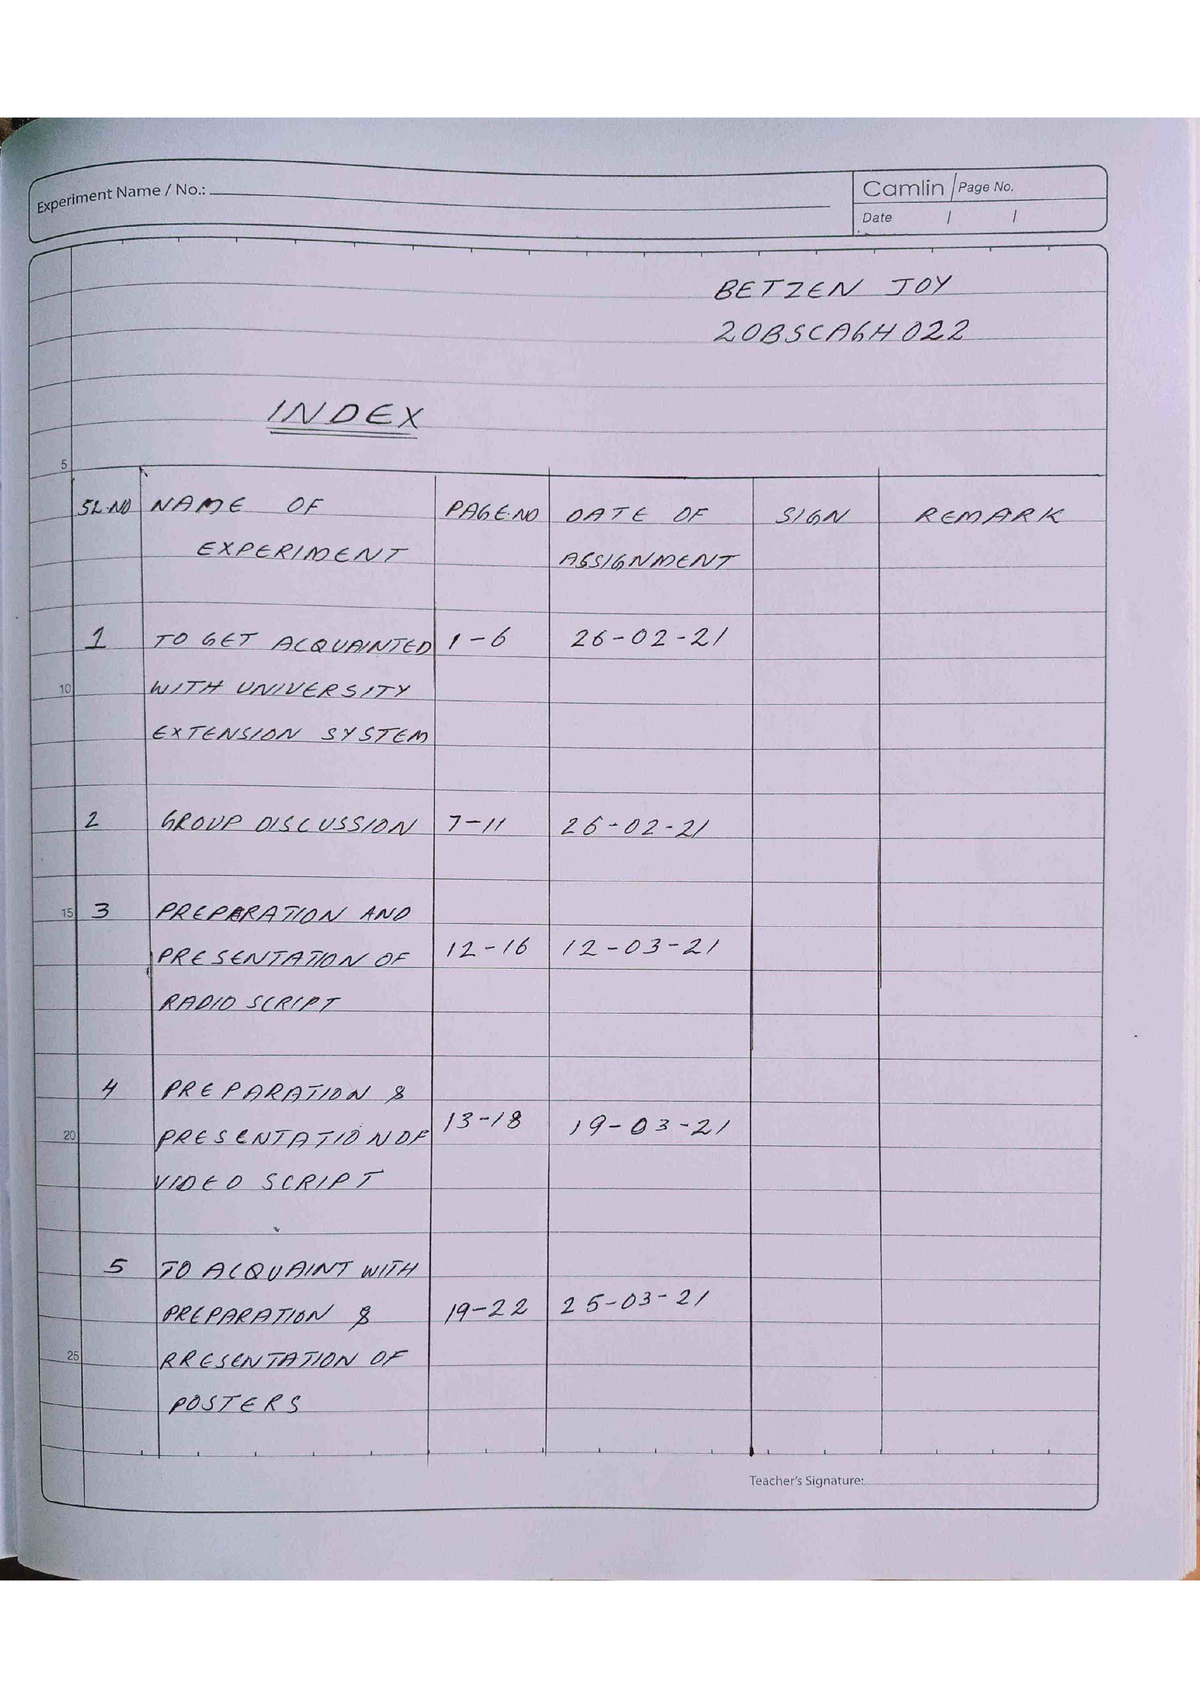 Experiment Name / No.:
Camlin Page No.
Date / /
BETZEN JOY
20BSCAGH022
INDEX
5
SL.NO NAME OF PAGE.NO DATE OF SIGN REMARK
EXPERIMENT ASSIGNMENT
1 TO GET ACQUAINTED 1-6 26-02-21
10 WITH UNIVERSITY
EXTENSION SYSTEM
2 GROUP DISCUSSION 7-11 26-02-21
15 3 PREPARATION AND
PRESENTATION OF 12-16 12-03-21
RADIO SCRIPT
4 PREPARATION &
20 PRESENTATION OF 13-18 19-03-21
VIDEO SCRIPT
5 TO ACQUAINT WITH
PREPARATION & 19-22 25-03-21
25 RRESENTATION OF
POSTERS
Teacher's Signature: